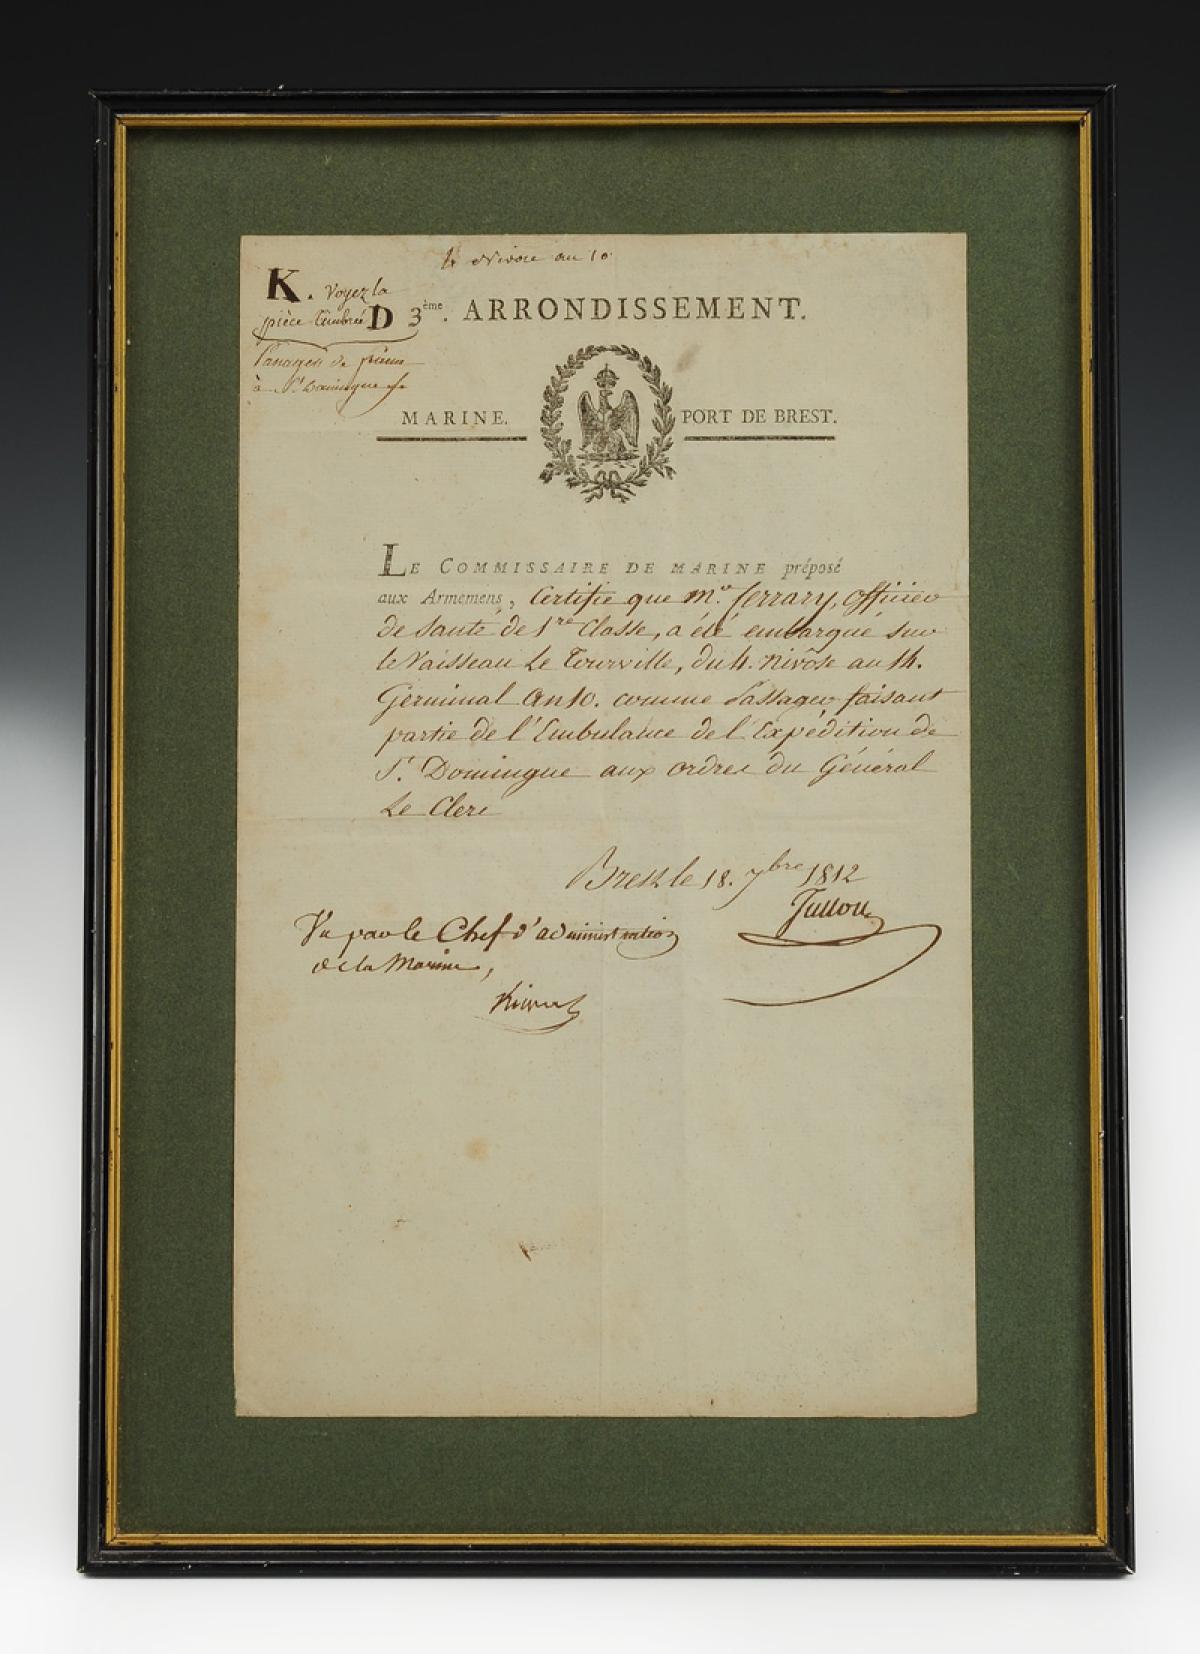 4 Nivose an 10
K. Voyez la
pièce timbrée D
à St Domingue
3ème. ARRONDISSEMENT.
MARINE. PORT DE BREST.
LE COMMISSAIRE DE MARINE préposé
aux Armemens, Certifie que Mr. ferrary, officier
de Santé de 1re Classe, a été embarqué sur
le Vaisseau Le Tourville, du 4. Nivôse au 14.
Germinal an 10. comme Passager faisant
partie de l'Embulance de l'Expédition de
St. Domingue aux ordres du Général
Le Clerc
Brest le 18. 7bre 1812
Vu par le Chef d'administration
de la Marine,